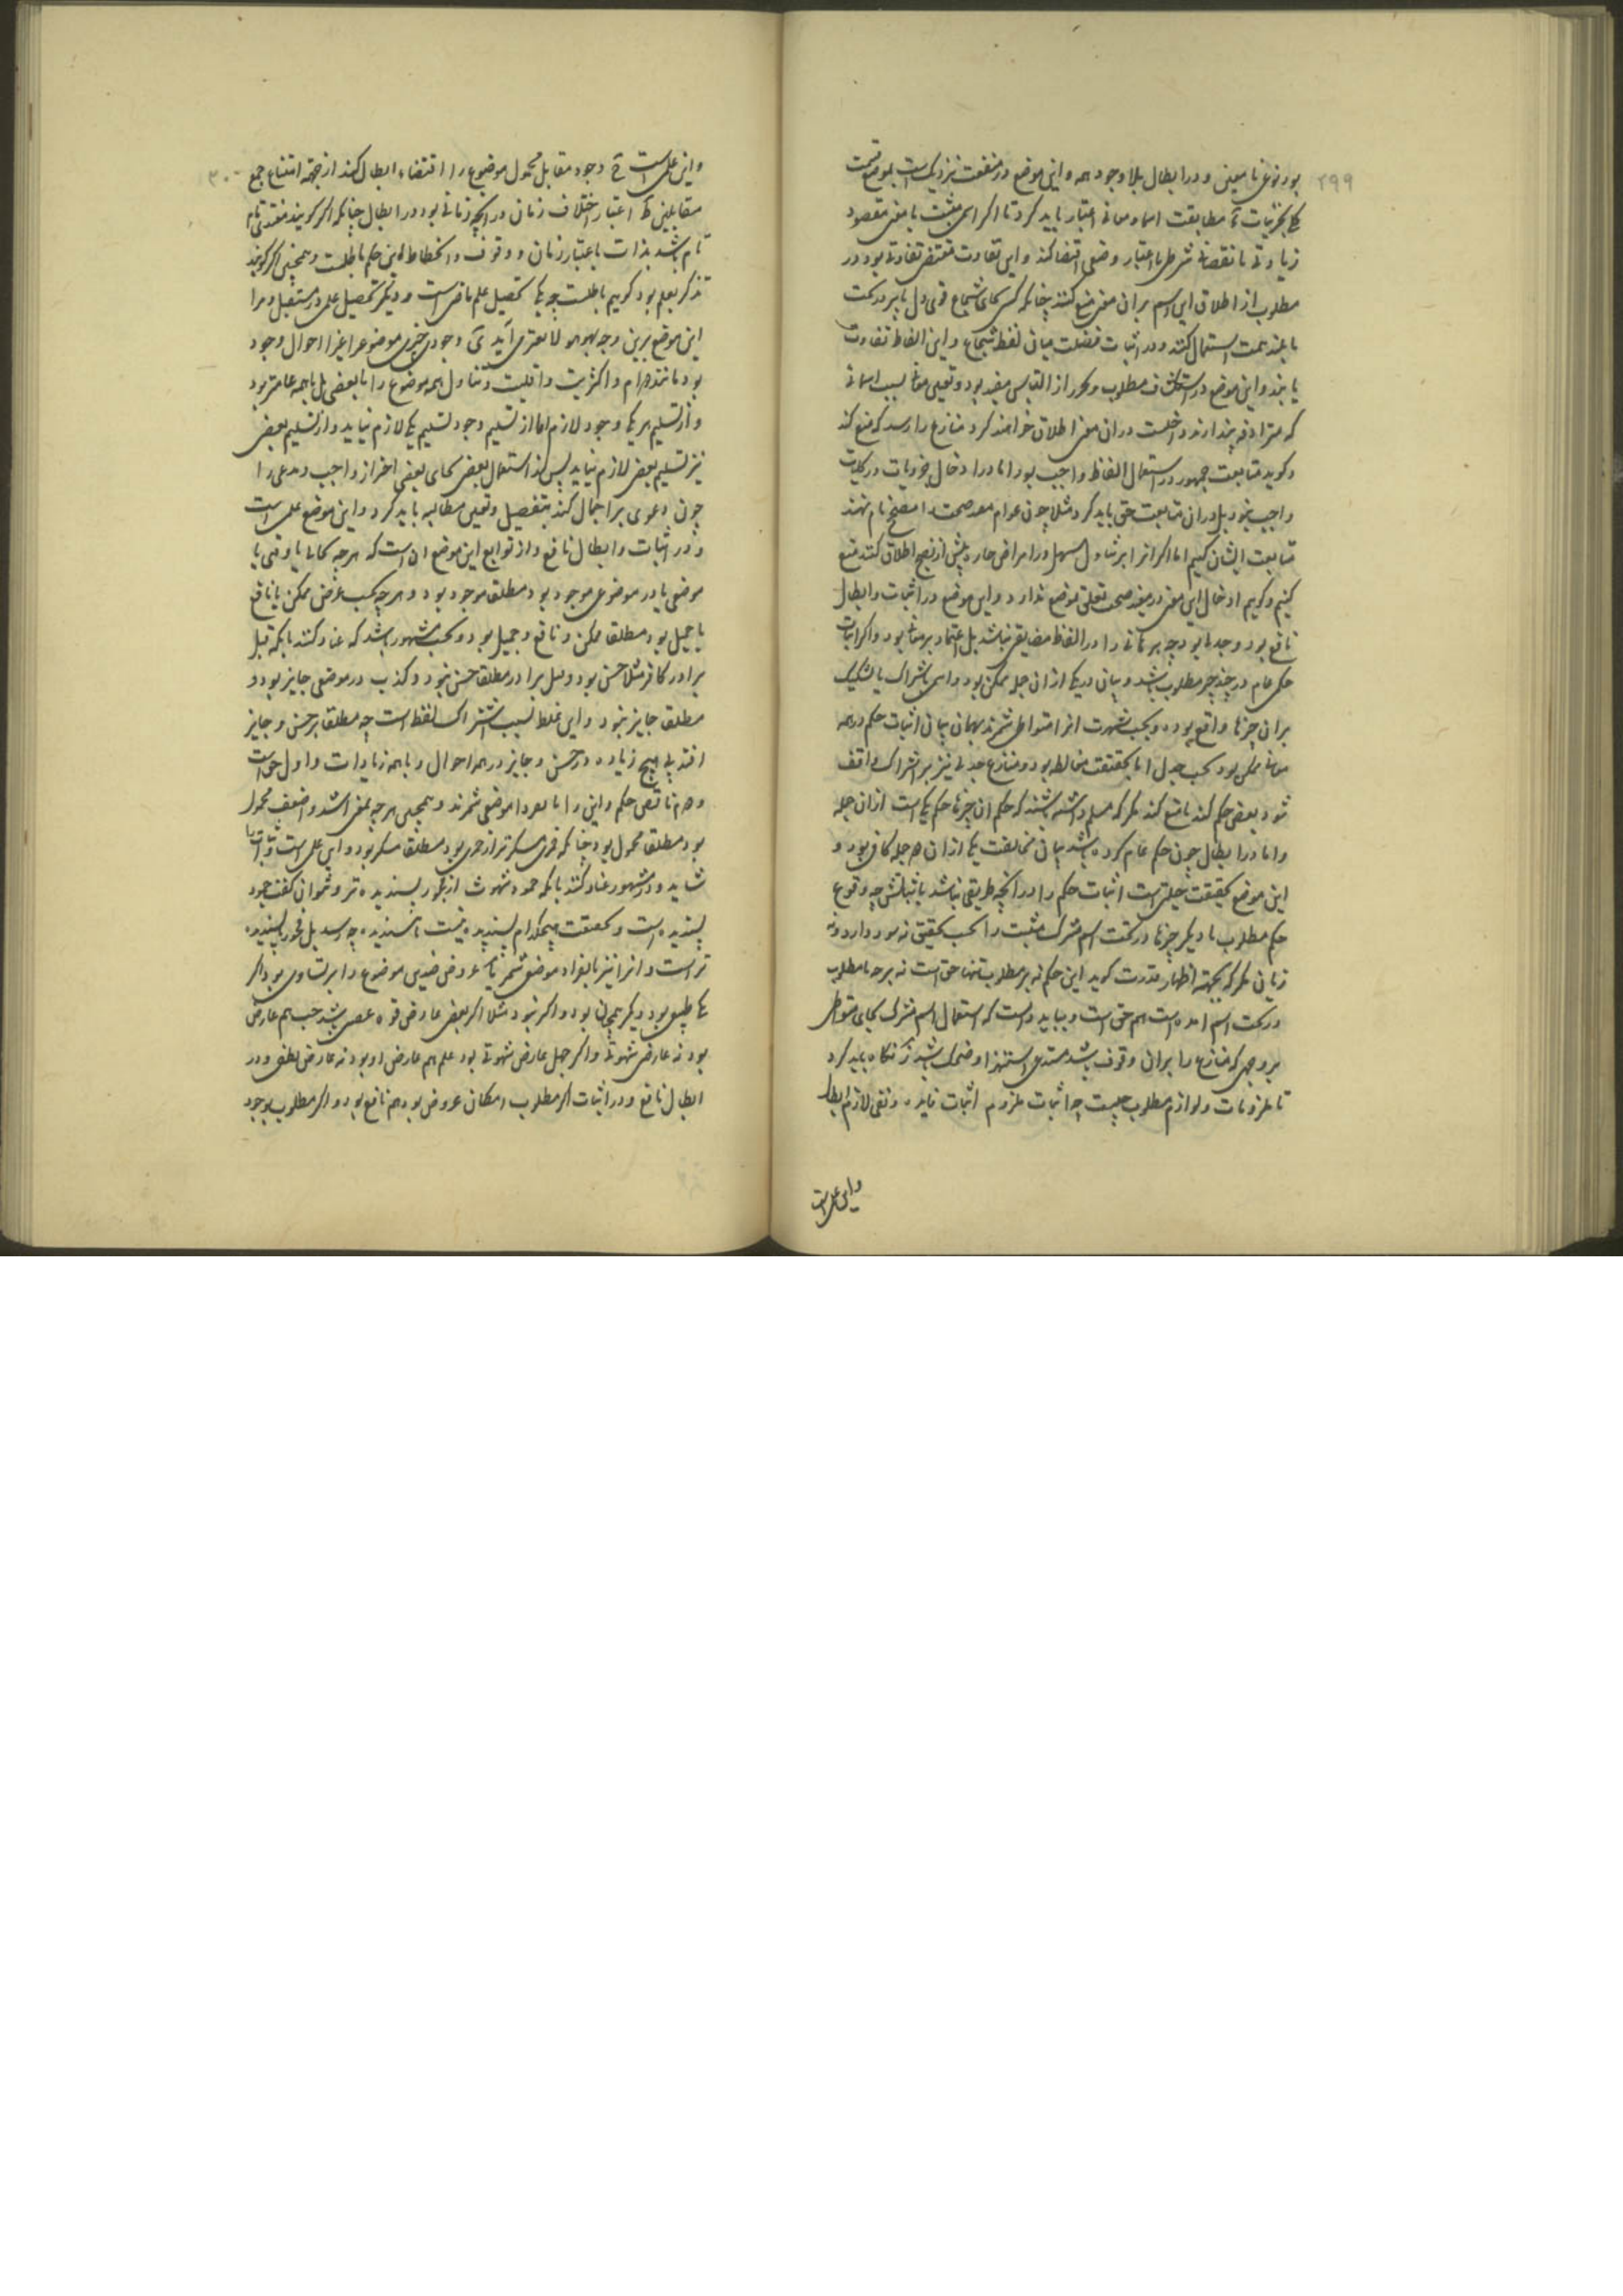 ۲۹۹
بود نوعی نامعین و در ابطال بلا وجود همه و این موضع در منفعت نزدیکست بموضع قسمت
بجزئیات مطابقت اسماء و معانی اعتبار باید کرد تا اگر اسمی مثبت با معنی مقصود
زیادتی یا نقصانی شرطی یا اعتبار وضعی اقتضا کند و این تفاوت مقتضی تفاوتی بود در
مطلوب از اطلاق این اسم بران معنی منع کنند چنانکه کسی بجای شجاع قوی دل یا پردل
یا بلند همت استعمال کند و در اثبات فضیلت میان لفظ شجاع و این الفاظ تفاوت
یابند و این موضع در استکشاف مطلوب و تحرز از التباس مفید بود و تعیین معانی بسبب اسمائی
که مترادف پندارند داخلست در آن معنی اطلاق خواهند کرد منازع را رسد که منع کند
و گوید متابعت جمهور در استعمال الفاظ واجب بود اما در ادخال جزویات در کلیات
واجب نبود بل در آن متابعت حق باید کرد مثلا چون عوام معد صحت را مصحح نام نهند
متابعت ایشان کنیم اما اگر آنرا بر تناول مسهل در امراض حاره پیش از نضج اطلاق کنند منع
کنیم و گوییم ادخال این معنی در مفید صحت تعلق بوضع ندارد و این موضع در اثبات و ابطال
نافع بود و جدلی بود چه برهانی را در الفاظ مضایقه نباشد بل اعتماد بر معانی بود و اگر اثبات
حکمی عام در چند چیز مطلوب باشد و بیان در یکی از آن جمله ممکن بود و اسمی باشتراک یا تشکیک
بران چیزها واقع بود و بحسب شهرت آنرا متواطی شمرند بهمان بیان اثبات حکم در همه
مواضع ممکن بود بحسب جدل اما بحقیقت مغالطه بود و منازع جدلی نیز بر اشتراک واقف
شود و بعضی حکم کند یا منع کند مگر که مسلم داشته باشند که حکم آن چیزها حکم یکیست از آن جمله
و اما در ابطال چون حکم عام کرده باشد بیان مخالفت یکی از آن جمله کافی بود و
این موضع بحقیقت حیلتیست اثبات حکم را در آنچه طریقی نباشد باثباتش چه وقوع
حکم مطلوب با دیگر چیزها در تحت اسم مشترک مثبت را بحسب حقیقی نه سود دارد و نه
زیان مگر که بجهت اظهار قدرت گوید این حکم نه بر مطلوب تنها حق است نه بر هر چه با مطلوب
در تحت اسم آمده است هم حق است و بباید دانست که استعمال اسم مشترک بجای متواطی
بر وجهی که منازع را بران وقوف باشد مستدعی استهزا و ضحک باشد نگاه باید کرد
تا ملزومات و لوازم مطلوب چیست چه اثبات ملزوم اثبات فایده و نفی لازم ابطال
و این علمی است
۳۰۰
و این علمی است وجود مقابل محمول موضوع را اقتضاء ابطال کند از جهة امتناع جمع
متقابلین اعتبار اختلاف زمان در آنچه زمانی بود در ابطال چنانکه اگر گویند مغتذی نام
نام باشد بذات باعتبار زمان وقوف و انحطاط این حکم باطلست و همچنین اگر گویند
تذکر تعلم بود گوییم باطلست چه یکی تحصیل علم ماضی است و دیگر تحصیل علمی در مستقبل و مرا
این موضع برین وجه بهو هو لا بغیری آید وجودی جزی موضوع را غیر احوال وجود
بود مانند دوام و اکثریت و اقلیت و تناول همه موضوع را یا بعضی بل با همه عامتر بود
و از تسلیم هر یکی وجود لازم اما از تسلیم وجود تسلیم یکی لازم نیاید و از تسلیم بعضی
نیز تسلیم بعضی لازم نیاید پس از استعمال بعضی بجای بعضی احتراز واجب و مدعی را
چون دعوی بر اجمال کند بتفصیل و تعیین مطالبه باید کرد و این موضع علمی است
و در اثبات و ابطال نافع و از توابع این موضع آن است که هر چه بحالی یا وقتی یا
موضعی یا در موضوعی موجود بود مطلقا موجود بود و هر چه بحسب غرضی ممکن یا نافع
یا جمیل بود مطلقا ممکن و نافع و جمیل بود و بحسب مشهور باشد که عناد کنند بآنکه قتل
برادر کافر مثلا حسن بود و قتل برادر مطلقا حسن نبود و کذب در موضعی جایز بود و
مطلقا جایز نبود و این غلط بسبب اشتراک لفظ است چه مطلقا بر حسن و جایز
افتد بی هیچ زیاده و بر حسن و جایز در همه احوال و با همه زیادات و اول حق است
و دوم ناقض حکم و این را بانفراد موضعی شمرند و همچنین هر چه بمعنی اشد و اضعف محمول
بود مطلقا محمول بود چنانکه خمری مسکرتر از خمری بود مطلقا مسکر بود و این علمی است و اثبات
شاید و در مشهور عناد کنند بآنکه جمود شهوت از فجور پسندیده تر و نتوان گفت جمود
پسندیده است و بحقیقت هیچکدام پسندیده نیست
تر است و آنرا نیز بانفراد موضعی شمرند عروض ضدین موضوع را بر تساوی بود اگر
یکی طبیعی بود دیگر همچنان بود و اگر نبود نبود مثلا اگر بغض عارض قوه غضبی باشد حب هم عارض
بود نه عارض شهوتی و اگر جهل عارض شهوتی بود علم هم عارض او بود نه عارض نطقی و در
ابطال نافع و در اثبات اگر مطلوب امکان عروض بود هم نافع بود و اگر مطلوب وجود